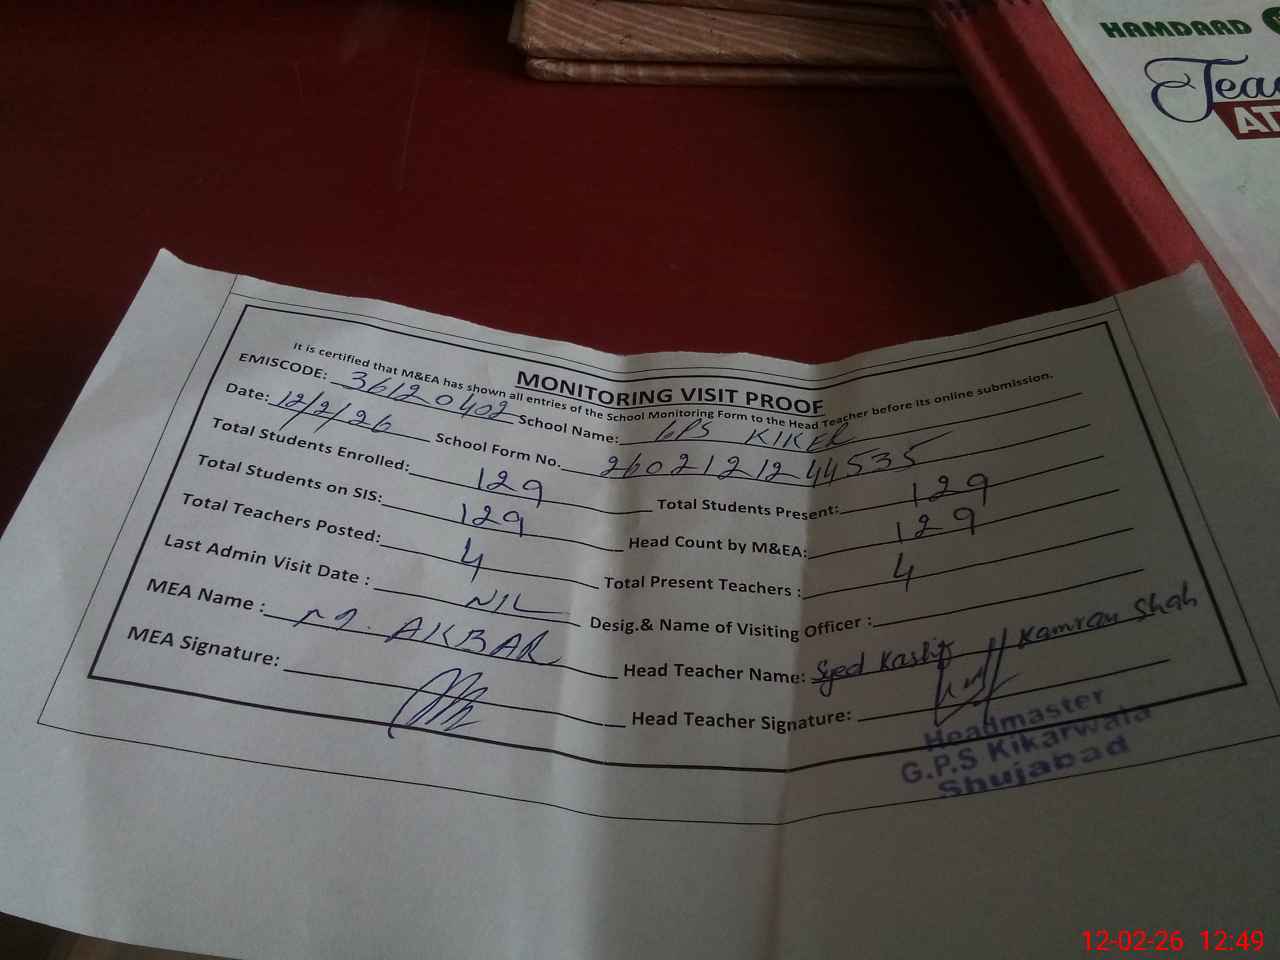 HAMDARD
Tea
AT
MONITORING VISIT PROOF
It is certified that M&EA has shown all entries of the School Monitoring Form to the Head Teacher before its online submission.
EMISCODE: 36120402 School Name: GPS KIKER
Date: 12/2/26 School Form No. 2602121244535
Total Students Enrolled: 129 Total Students Present: 129
Total Students on SIS: 129 Head Count by M&EA: 129
Total Teachers Posted: 4 Total Present Teachers : 4
Last Admin Visit Date : NIL Desig.& Name of Visiting Officer :
MEA Name : M. AKBAR Head Teacher Name: Syed Kashif Kamran Shah
MEA Signature: Head Teacher Signature:
Headmaster
G.P.S Kikarwala
Shujabad
12-02-26 12:49